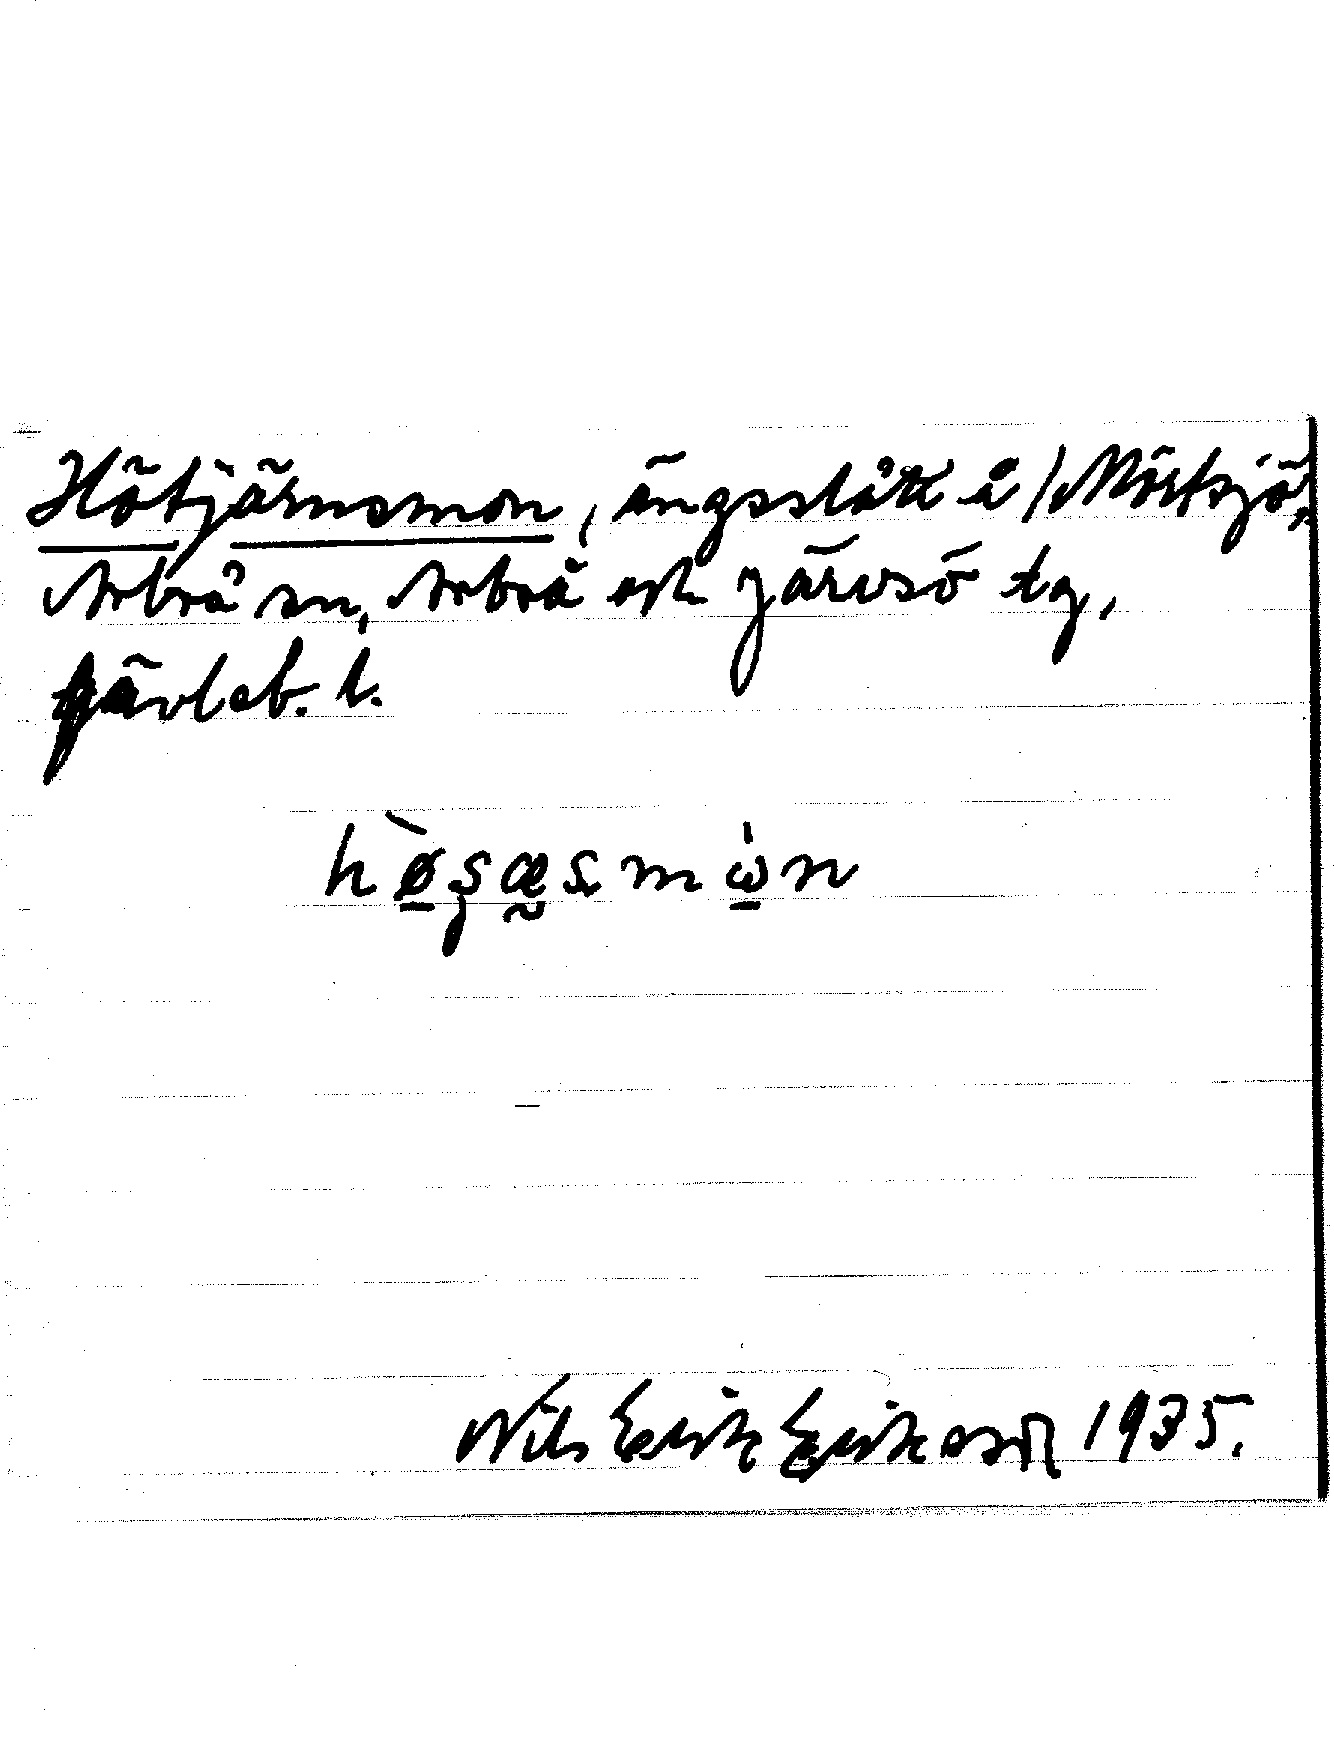 Hötjärnsmon, ängsslått å Mörtsjö,
Arbrå sn, Arbrå och Järvsö tg,
Gävleb. l.
Nils Erik Eriksson 1935.